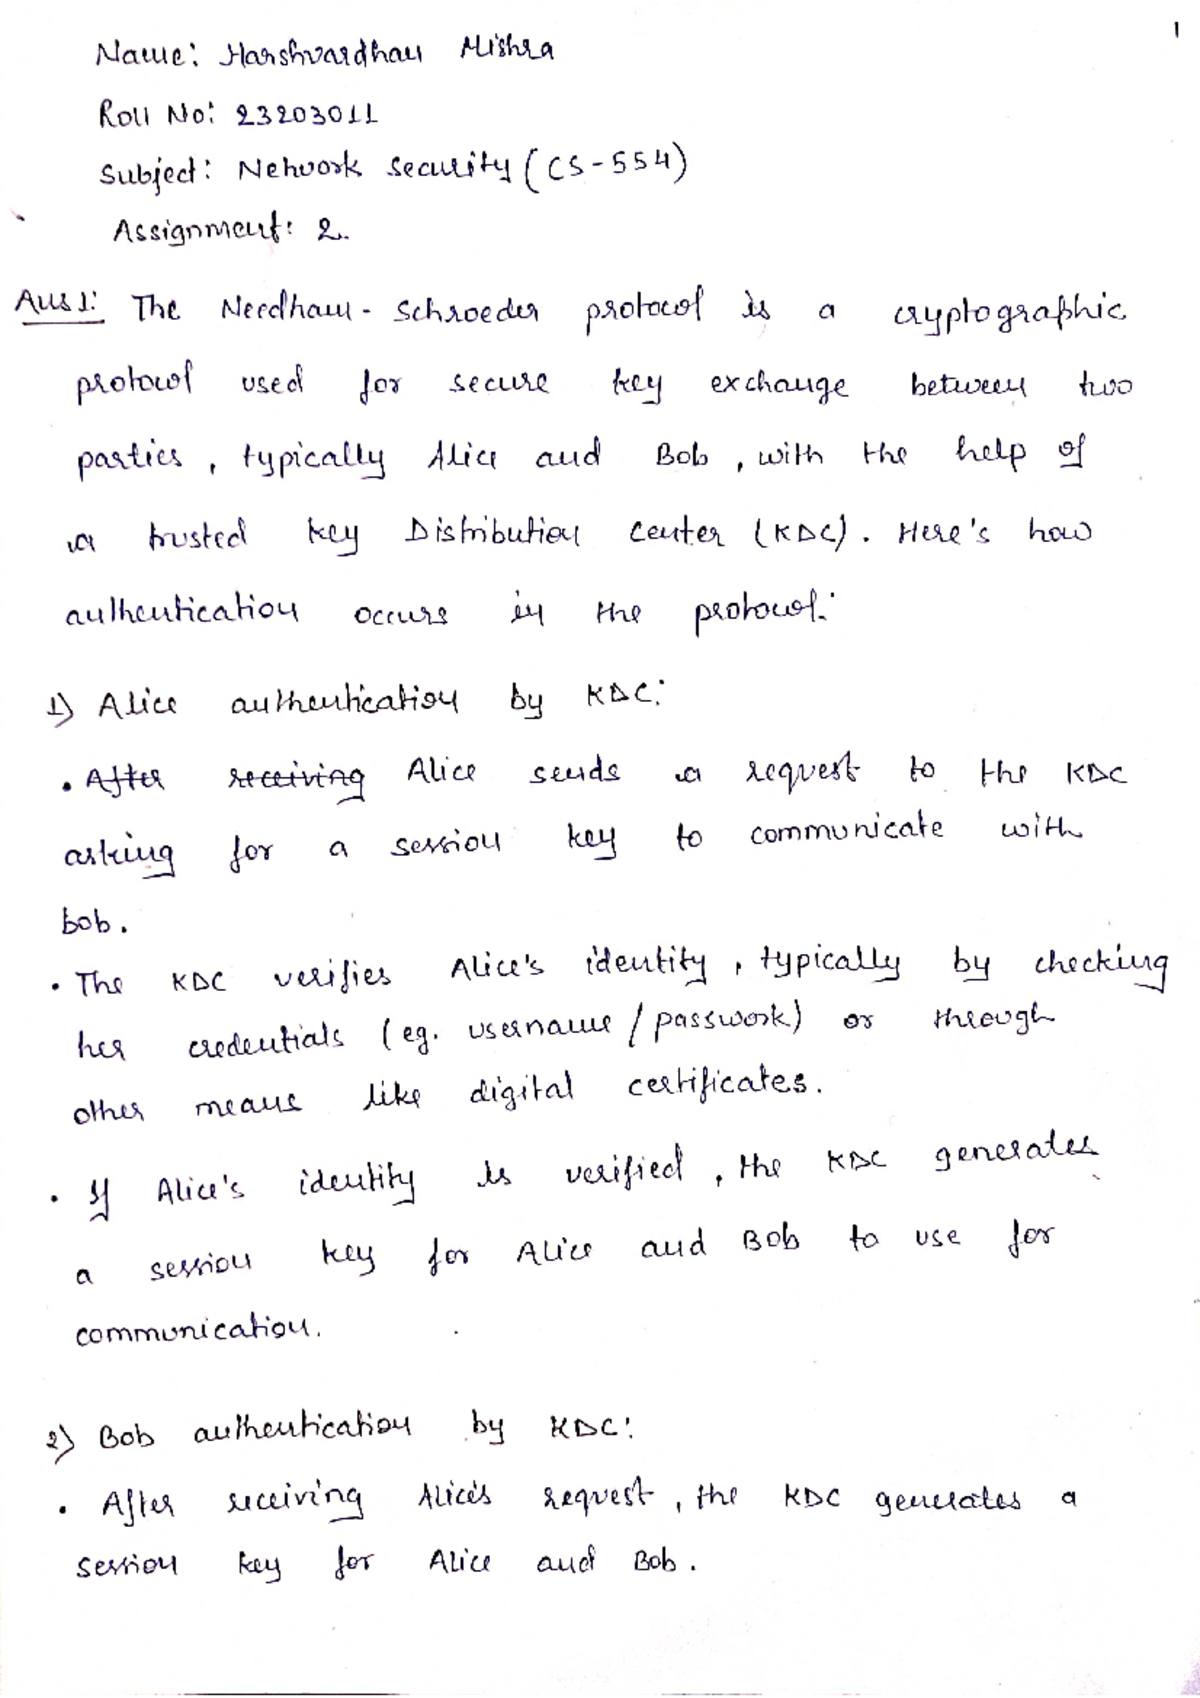 1
Name: Harshvardhan Mishra
Roll No: 23203011
Subject: Network security (CS-554)
Assignment: 2.
Ans 1: The Needham-Schroeder protocol is a cryptographic
protocol used for secure key exchange between two
parties, typically Alice and Bob, with the help of
a trusted key Distribution center (KDC). Here's how
authentication occurs in the protocol:
1) Alice authentication by KDC:
• After receiving Alice sends a request to the KDC
asking for a session key to communicate with
bob.
• The KDC verifies Alice's identity, typically by checking
her credentials (eg. username/passwork) or through
other means like digital certificates.
• If Alice's identity is verified, the KDC generates
a session key for Alice and Bob to use for
communication.
2) Bob authentication by KDC:
• After receiving Alice's request, the KDC generates a
session key for Alice and Bob.